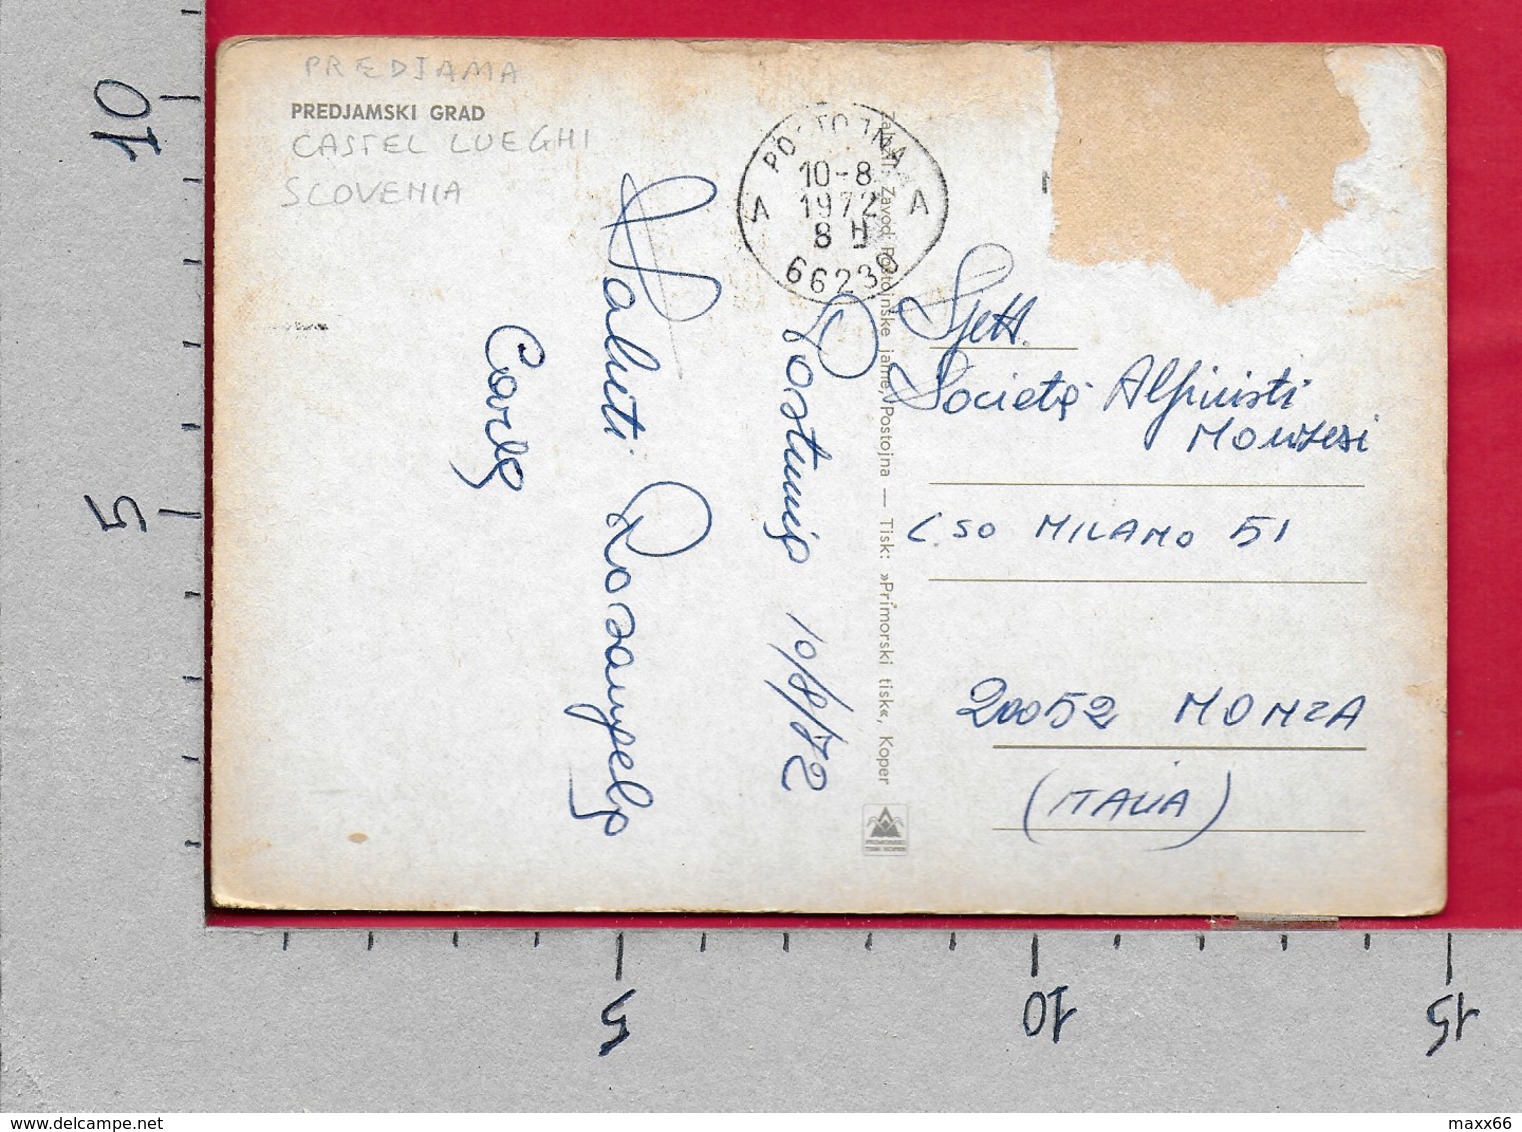 PREDJAMA
PREDJAMSKI GRAD
CASTEL LUEGHI
SLOVENIA
POSTOJNA
10-8
1972
8 H
A A
66230
Postumia 10/8/72
Saluti Rosangela
Carla
Založil: Zavod Postojnske jame, Postojna — Tisk: »Primorski tisk«, Koper
Spett.
Società Alpinisti
Monzesi
C.SO MILANO 51
20052 MONZA
(ITALIA)
PRIMORSKI
TISK KOPER
10
5
5
10
15
delcampe.net
maxx66